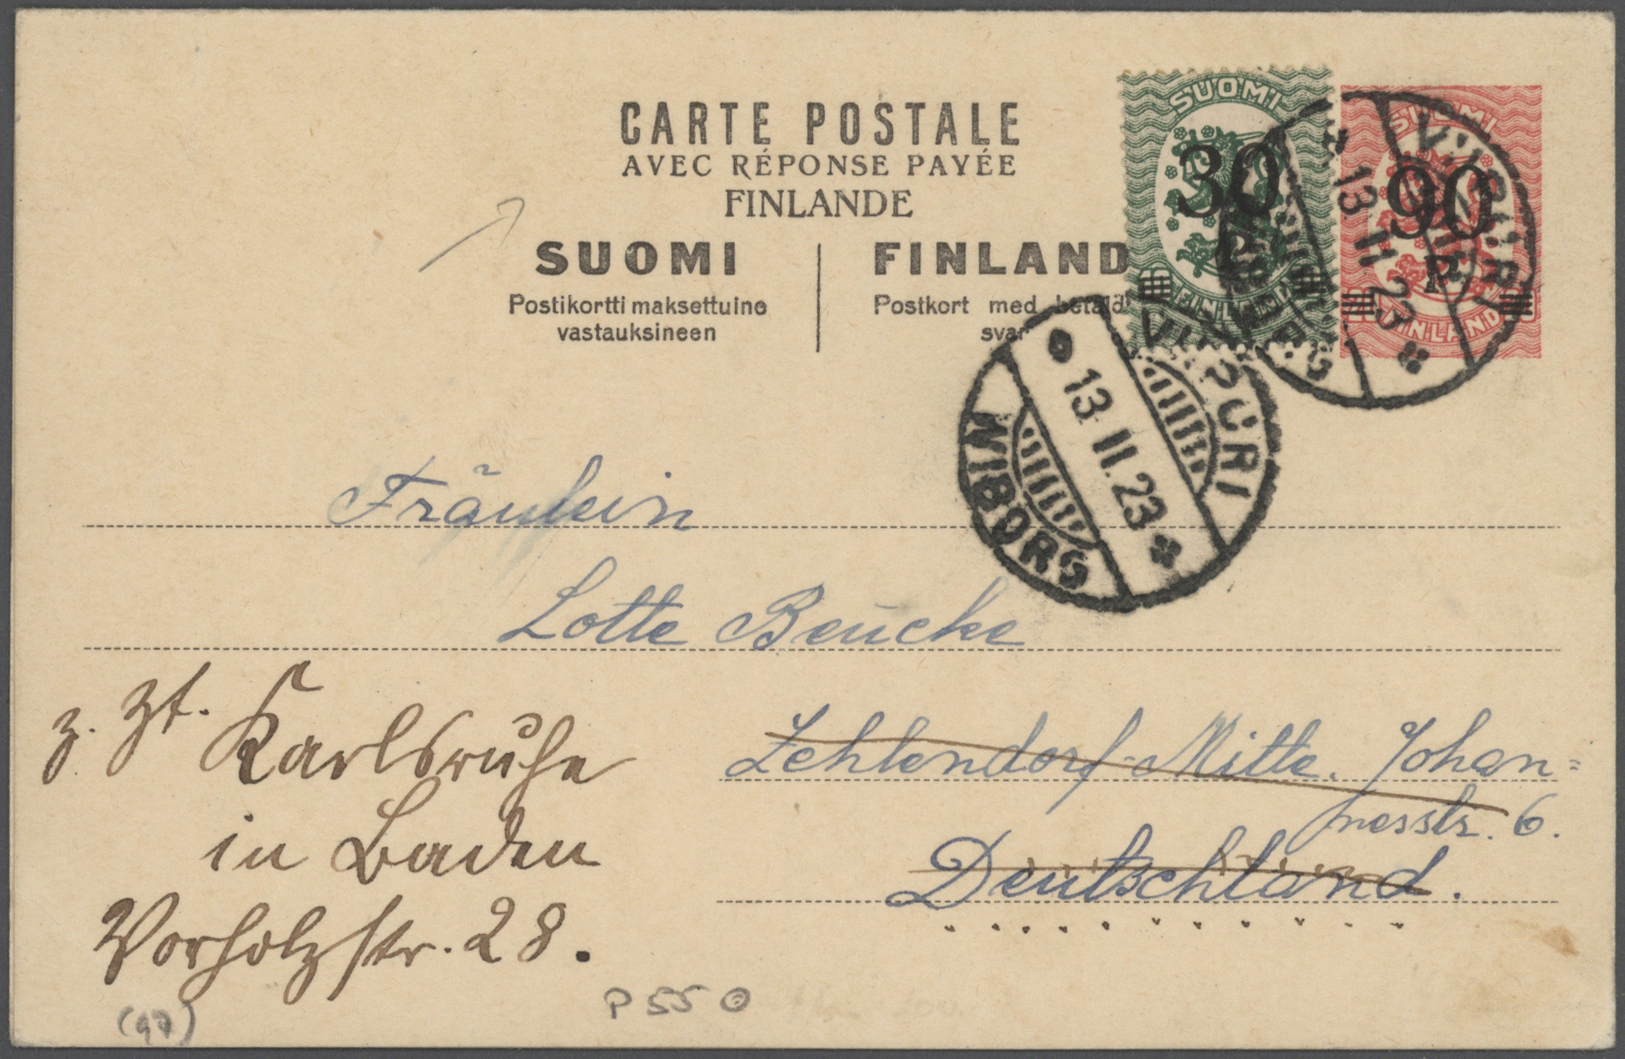 CARTE POSTALE
AVEC RÉPONSE PAYÉE
FINLANDE
SUOMI
FINLAND
Postikortti maksettuine
vastauksineen
Postkort med betald
svar
SUOMI
30
P
FINLAND
SUOMI
90
P
FINLAND
VIIPURI
13.II.23
WIBORG
VIIPURI
13.II.23
WIBORG
Fräulein
Lotte Beucke
Zehlendorf-Mitte. Johan=
nesstr. 6.
Deutschland.
z. Zt. Karlsruhe
in Baden
Vorholzstr. 28.
P 55
(97)